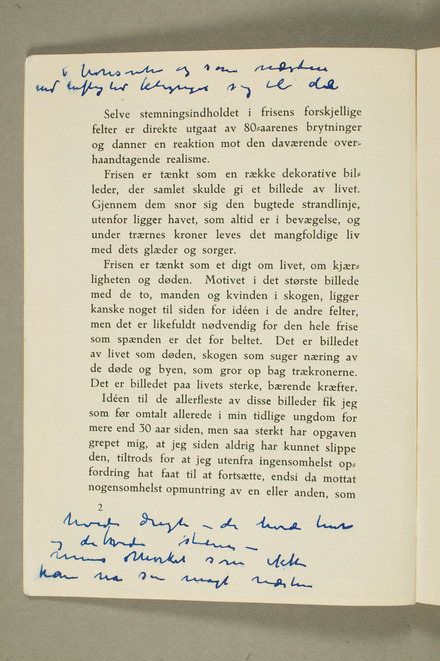 og som næsten
sig til de
Selve stemningsindholdet i frisens forskjellige
felter er direkte utgaat av 80-aarenes brytninger
og danner en reaktion mot den daværende over-
haandtagende realisme.
Frisen er tænkt som en række dekorative bil-
leder, der samlet skulde gi et billede av livet.
Gjennem dem snor sig den bugtede strandlinje,
utenfor ligger havet, som altid er i bevægelse, og
under trærnes kroner leves det mangfoldige liv
med dets glæder og sorger.
Frisen er tænkt som et digt om livet, om kjær-
ligheten og døden. Motivet i det største billede
med de to, manden og kvinden i skogen, ligger
kanske noget til siden for idéen i de andre felter,
men det er likefuldt nødvendig for den hele frise
som spænden er det for beltet. Det er billedet
av livet som døden, skogen som suger næring av
de døde og byen, som gror op bag trækronerne.
Det er billedet paa livets sterke, bærende kræfter.
Idéen til de allerfleste av disse billeder fik jeg
som før omtalt allerede i min tidlige ungdom for
mere end 30 aar siden, men saa sterkt har opgaven
grepet mig, at jeg siden aldrig har kunnet slippe
den, tiltrods for at jeg utenfra ingensomhelst op-
fordring hat faat til at fortsætte, endsi da mottat
nogensomhelst opmuntring av en eller anden, som
2
og de
som ikke
kan na sin magt næsten